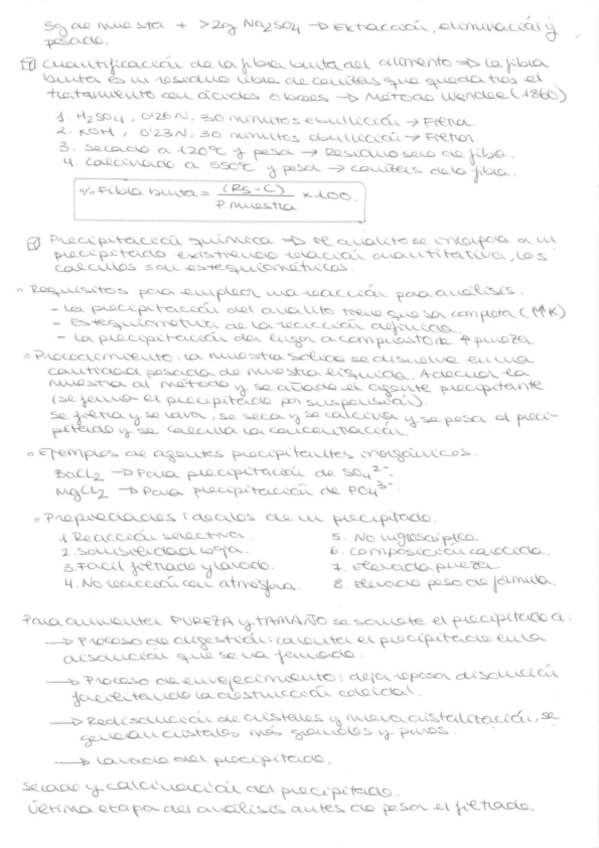 5g de muestra + >2g Na2SO4 → Extracción, eliminación y
pesado.
Cuantificación de la fibra bruta del alimento → La fibra
bruta es un residuo libre de cenizas que queda tras el
tratamiento con ácidos o bases → Método Wendee (1860)
1. H2SO4, 0'26N, 30 minutos ebullición → Filtrar.
2. KOH, 0'23N, 30 minutos ebullición → Filtrar.
3. Secado a 120ºC y pesa → Residuo seco de fibra.
4. Calcinado a 550ºC y pesar → cenizas de la fibra.
% Fibra bruta = (Rs - C) / P muestra x 100.
Precipitación química → El analito se incorpora a un
precipitado existiendo relación cuantitativa, los
cálculos son estequiométricos.
• Requisitos para emplear una reacción para análisis:
- La precipitación del analito tiene que ser completa (↑↑K)
- Estequiometría de la reacción definida.
- La precipitación da lugar a compuesto de ↑ pureza.
• Procedimiento: la muestra sólida se disuelve en una
cantidad pesada de muestra líquida. Adecuar la
muestra al método y se añade el agente precipitante
(se forma el precipitado por suspensión).
Se filtra y se lava, se seca y se calcina y se pesa el preci-
pitado y se calcula la concentración.
• Ejemplos de agentes precipitantes inorgánicos.
BaCl2 → Para precipitación de SO4 2-.
MgCl2 → Para precipitación de PO4 3-.
• Propiedades ideales de un precipitado.
1. Reacción selectiva. 5. No higroscópico
2. Solubilidad baja. 6. Composición conocida.
3. Fácil filtrado y lavado. 7. Elevada pureza.
4. No reacción con atmósfera. 8. Elevado peso de fórmula.
Para aumentar PUREZA y TAMAÑO se somete el precipitado a:
→ Proceso de digestión: calentar el precipitado en la
disolución que se va formado.
→ Proceso de envejecimiento: deja reposar disolución
facilitando la destrucción coloidal.
→ Redisolución de cristales y nueva cristalización, se
generan cristales más grandes y puros.
→ Lavado del precipitado.
Secado y calcinación del precipitado.
Última etapa del análisis antes de pesar el filtrado.